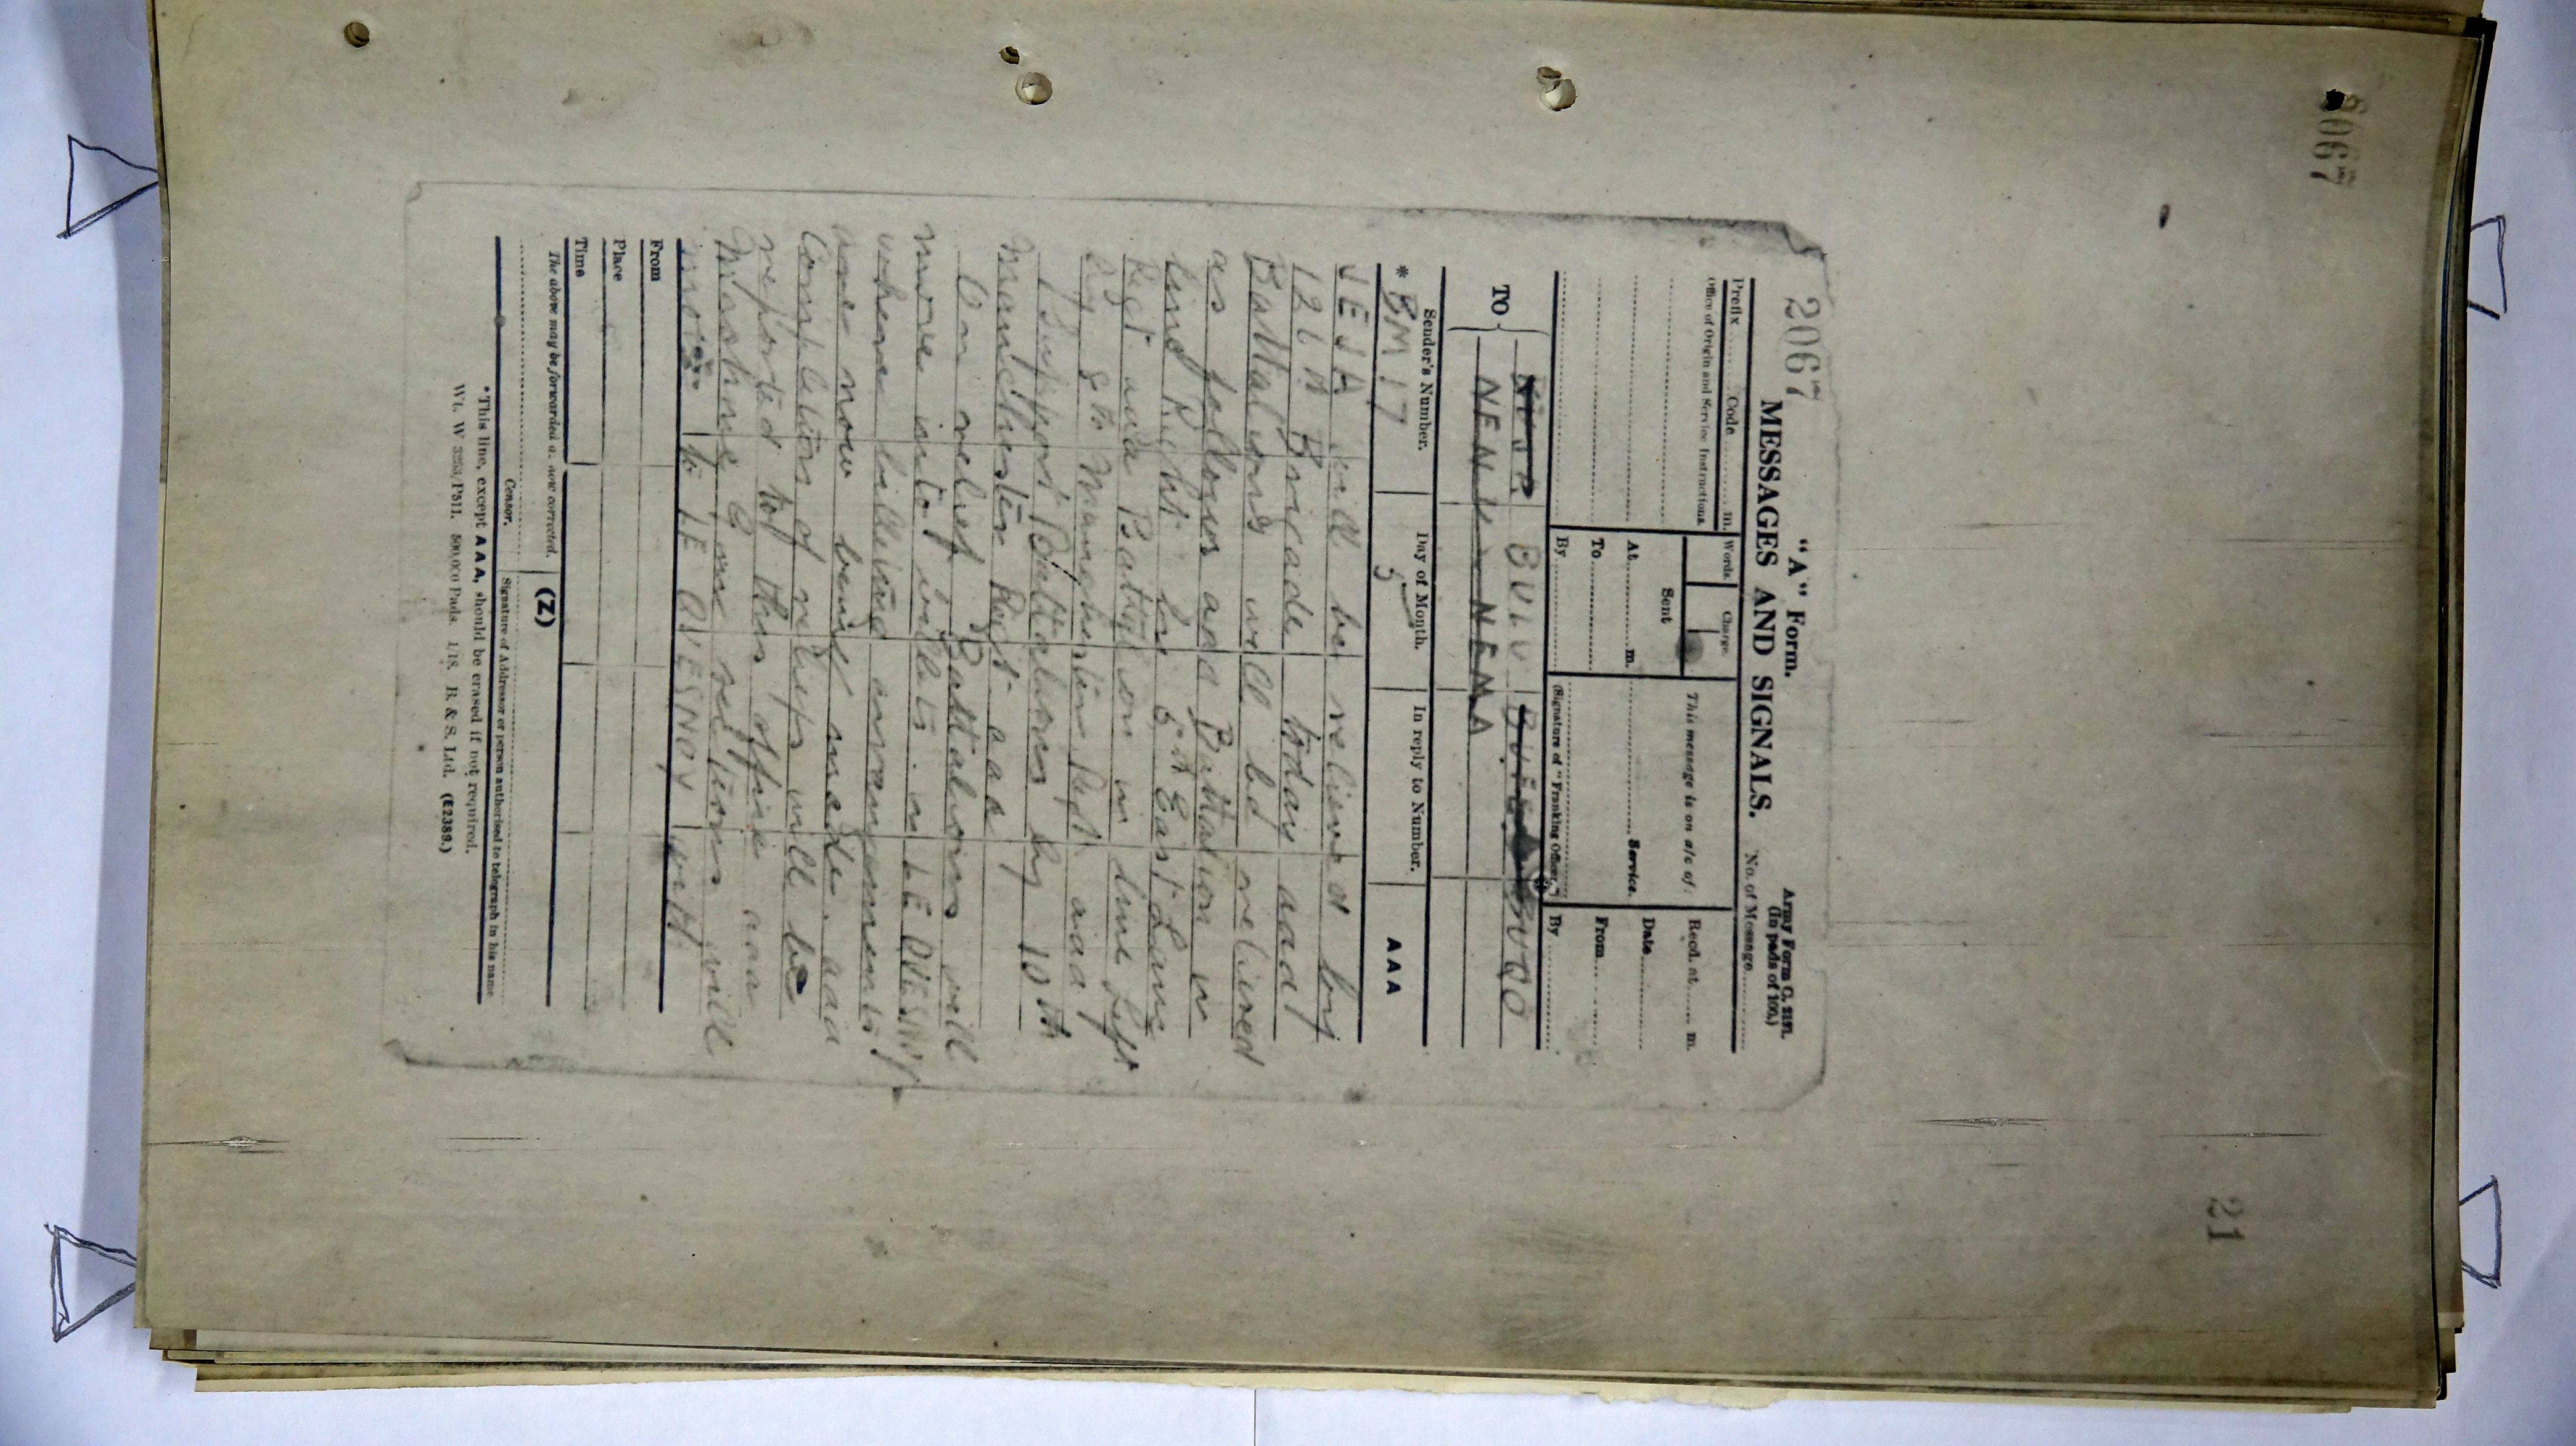 2067
21
2067
"A" Form.
MESSAGES AND SIGNALS.
Army Form C. 2121.
(In pads of 100.)
No. of Message
Prefix Code m.
Office of Origin and Service Instructions.
Words. Charge.
Sent
At m.
To
By
This message is on a/c of:
Service.
(Signature of "Franking Officer.")
Recd. at m.
Date
From
By
TO
BULU BUQO
NENU NEMA
Sender's Number. Day of Month. In reply to Number.
* BM 17 5 AAA
JEJA will be relieved by
126 Brigade today aaa
Battalions will be relieved
as follows aaa Battalion in
line Right by 5th East Lanc
Regt aaa Battalion in line left
by 8th Manchester Regt aaa
Support Battalion by 10th
Manchester Regt aaa
On relief Battalions will
move into billets in LE QUESNOY
where billeting arrangements
are now being made. aaa
Completion of reliefs will be
reported to this office aaa
Machine Gun sections will
move to LE QUESNOY with
From
Place
Time
The above may be forwarded as now corrected. (Z)
Censor. Signature of Addressor or person authorised to telegraph in his name
*This line, except A A A, should be erased if not required.
Wt. W 3253/P511. 500,000 Pads. 1/18. B. & S. Ltd. (E2389.)